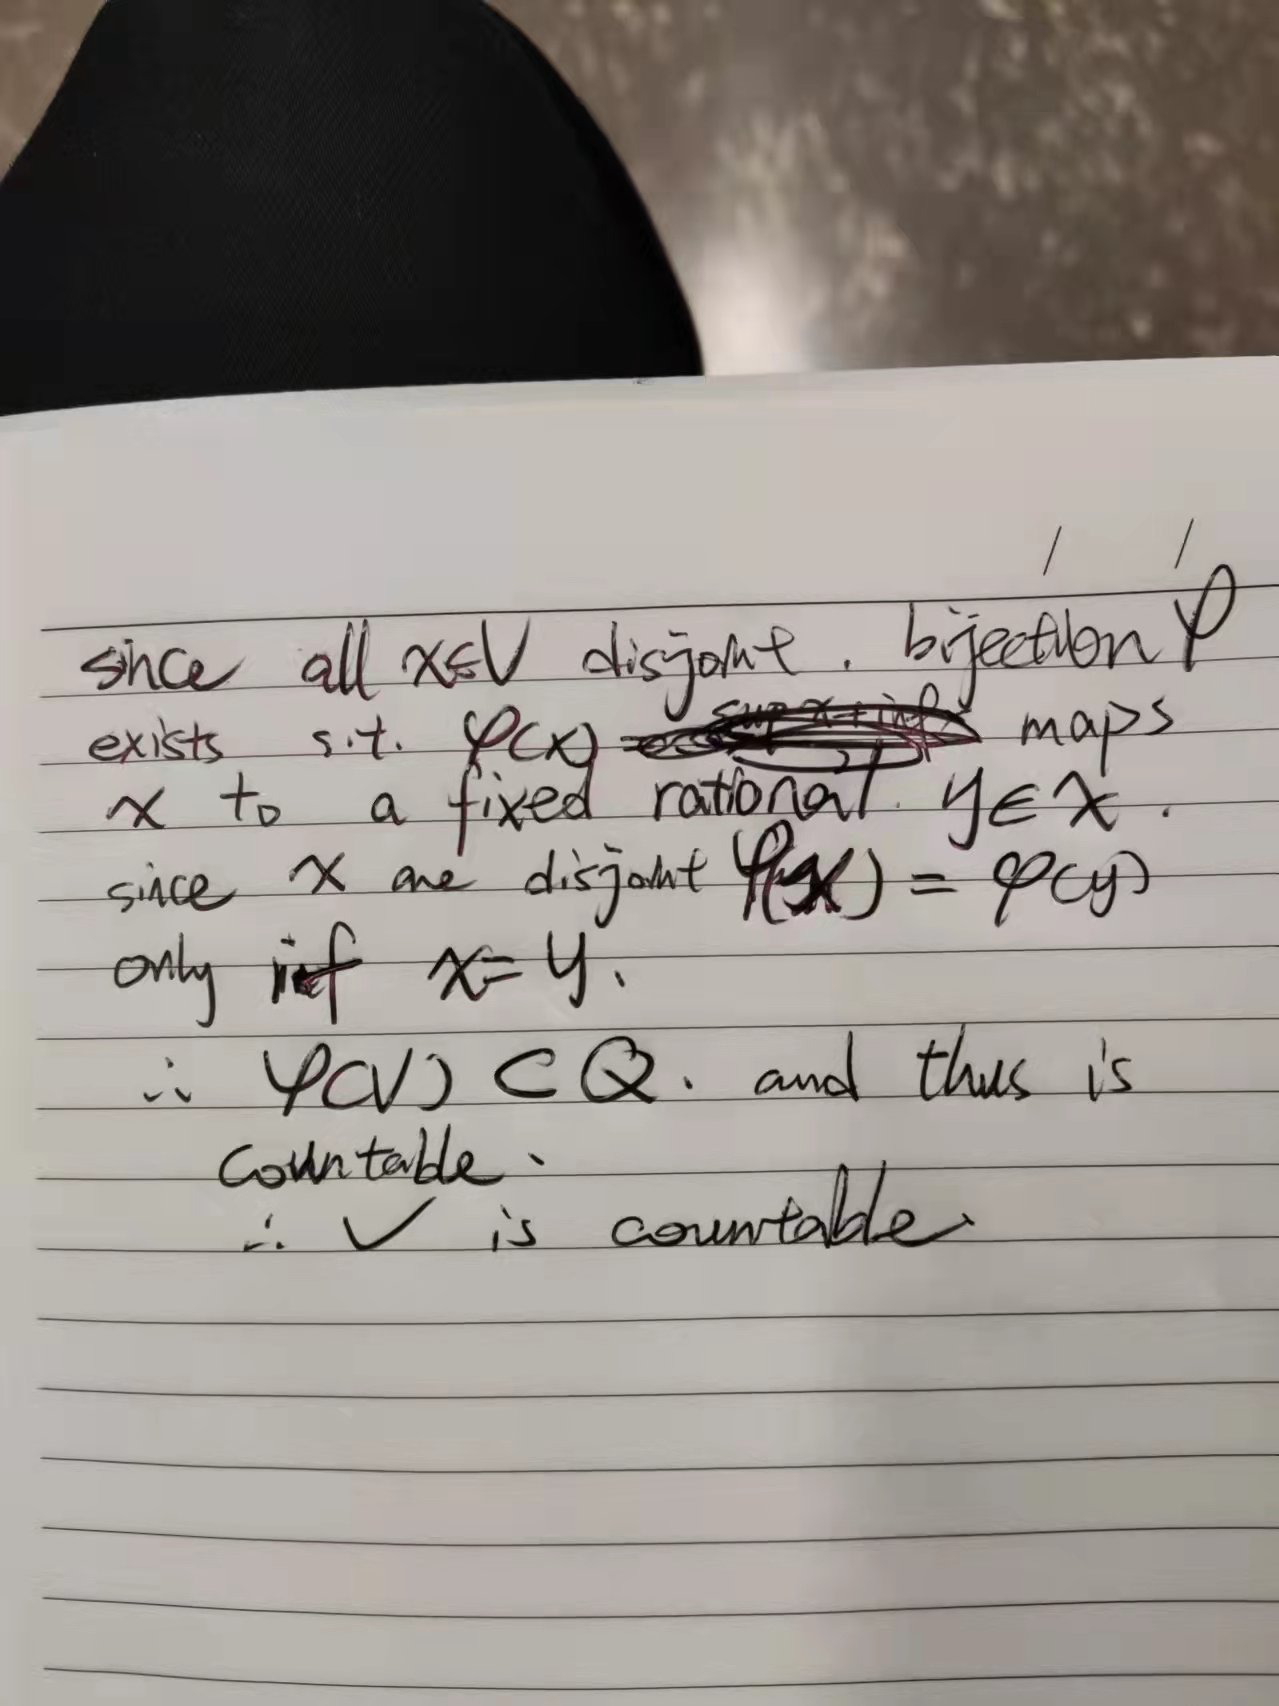 since all x∈V disjoint. bijection φ
exists s.t. φ(x) maps
x to a fixed rational. y∈x.
since x are disjoint φ(x) = φ(y)
only if x=y.
∴ φ(V) ⊂ Q. and thus is
countable.
∴ V is countable.